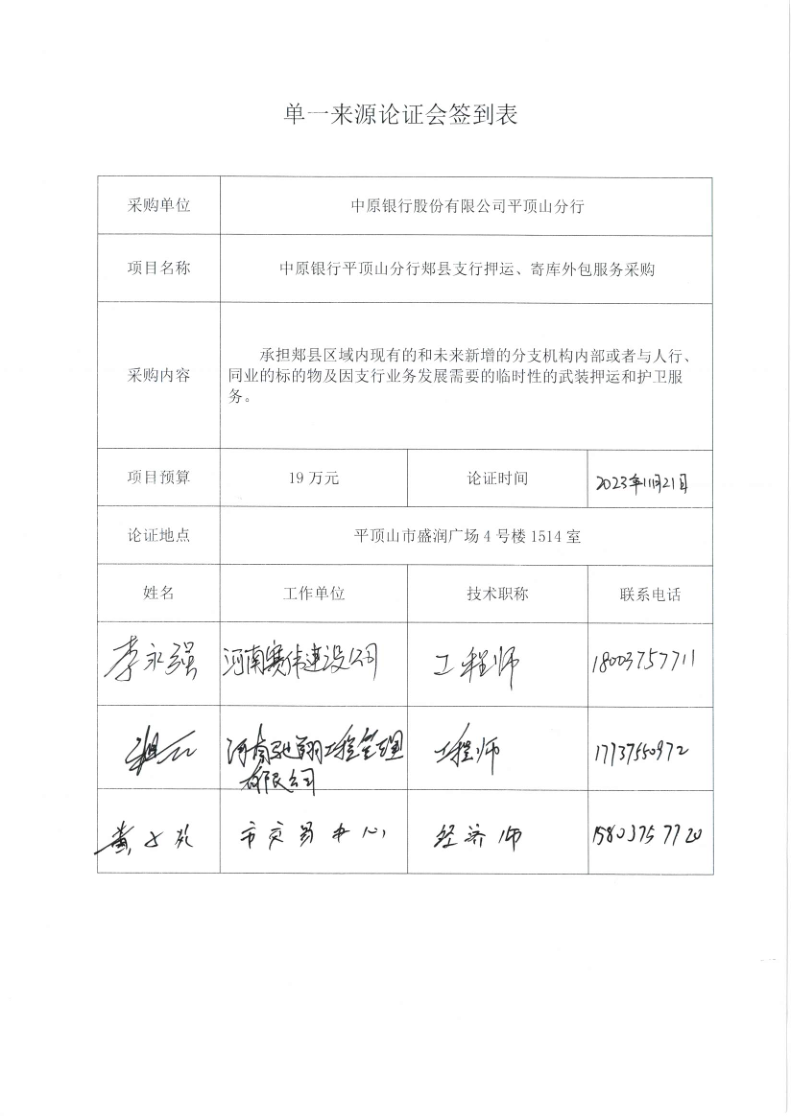 单一来源论证会签到表
采购单位 中原银行股份有限公司平顶山分行
项目名称 中原银行平顶山分行郏县支行押运、寄库外包服务采购
承担郏县区域内现有的和未来新增的分支机构内部或者与人行、
采购内容 同业的标的物及因支行业务发展需要的临时性的武装押运和护卫服
务。
项目预算 19 万元 论证时间 2023年11月21日
论证地点 平顶山市盛润广场 4 号楼 1514 室
姓名 工作单位 技术职称 联系电话
李永强 河南赛伟建设公司 工程师 18003757711
河南驰翔工程管理 工程师 17137550972
有限公司
黄 市交易中心 经济师 15803757720